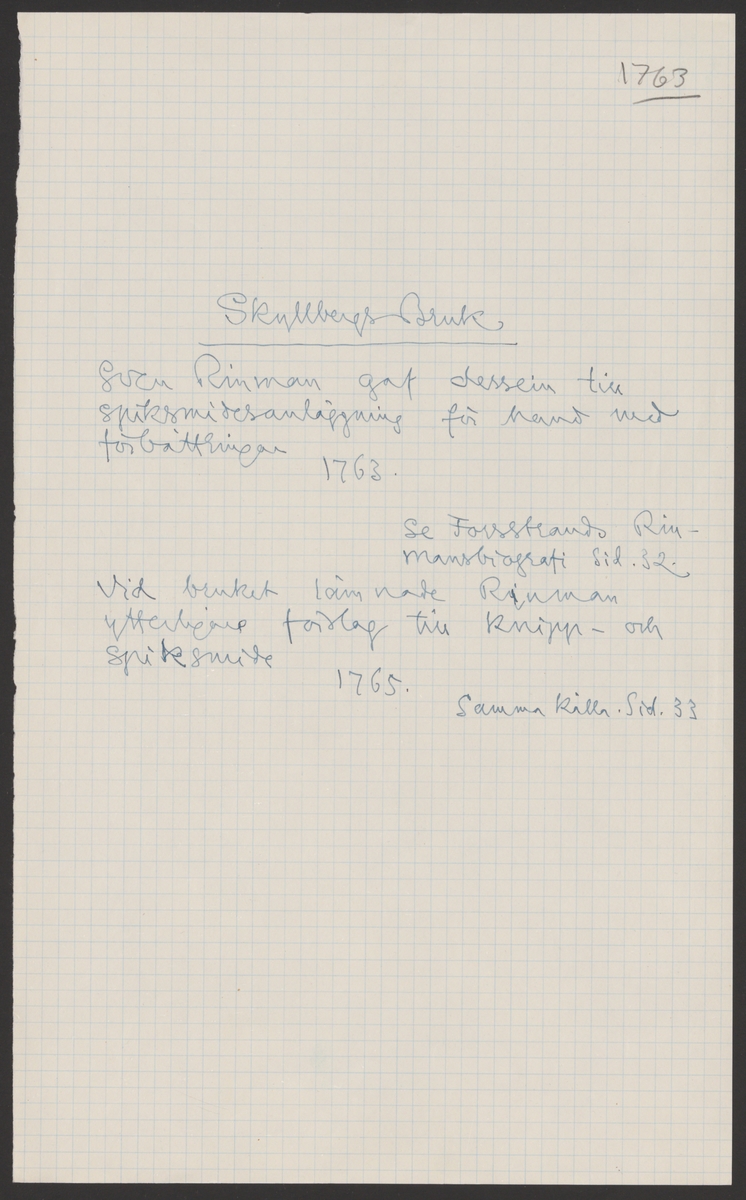 1763
Skyllbergs Bruk
Sven Rinman gaf dessein till
spiksmidesanläggning för hand med
förbättringar
1763.
Se Forsstrands Rin-
mansbiografi Sid. 32.
Vid bruket lämnade Rinman
ytterligare förslag till knipp- och
spiksmide
1765.
Samma källa. Sid. 33